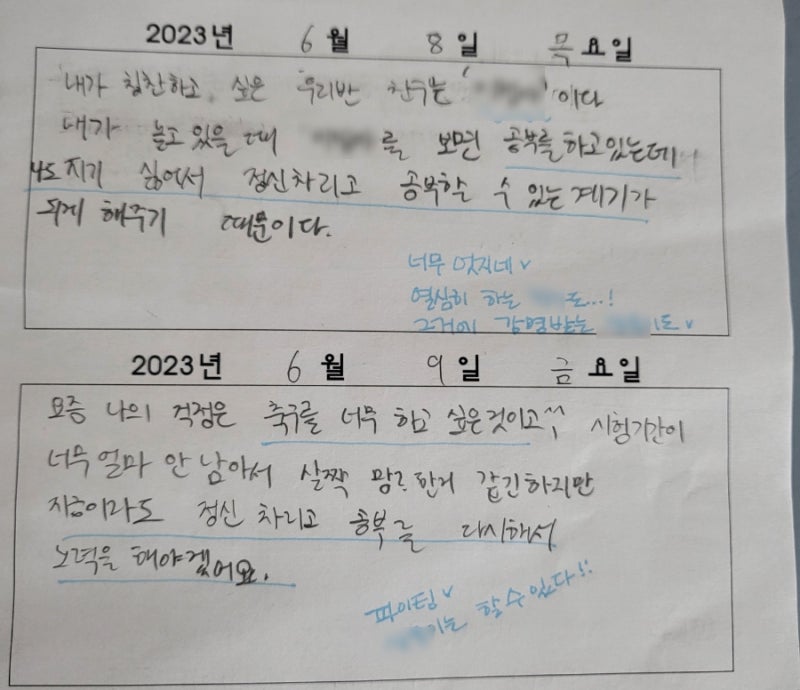 2023년 6월 8일 목요일
내가 칭찬하고 싶은 우리반 친구는 ' '이다
내가 놀고있을 때 를 보면 공부를 하고있는데
지기 싫어서 정신차리고 공부할 수 있는 계기가
되게 해주기 때문이다.
너무 멋지네
열심히 하는 도...!
그거에 감명받는 도
2023년 6월 9일 금요일
요즘 나의 걱정은 축구를 너무 하고 싶은것이고^^ 시험기간이
너무 얼마 안 남아서 살짝 망한거 같긴하지만
지금이라도 정신 차리고 공부를 다시해서
노력을 해야겠어요.
파이팅
는 할 수 있다!!